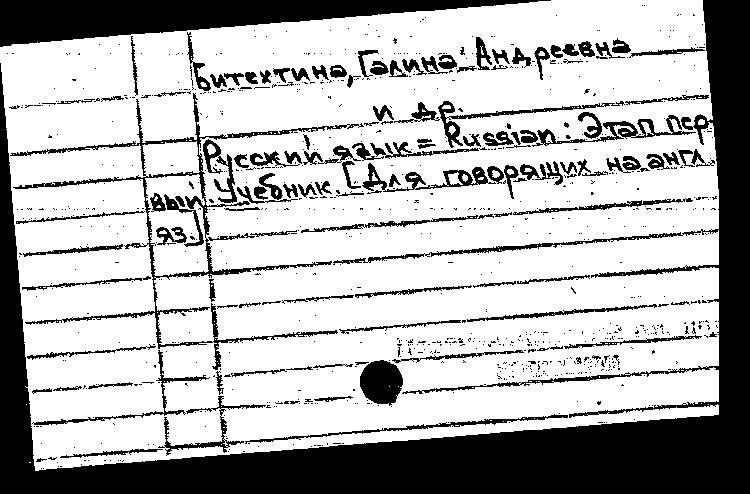 Битехтина, Галина Андреевна
и др.
Русский язык = Russian : Этап пер-
вый. Учебник. [Для говорящих на англ.
яз.]